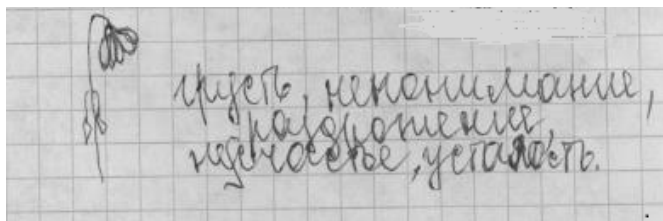 грусть, непонимание,
раздражение,
несчастье, усталость.